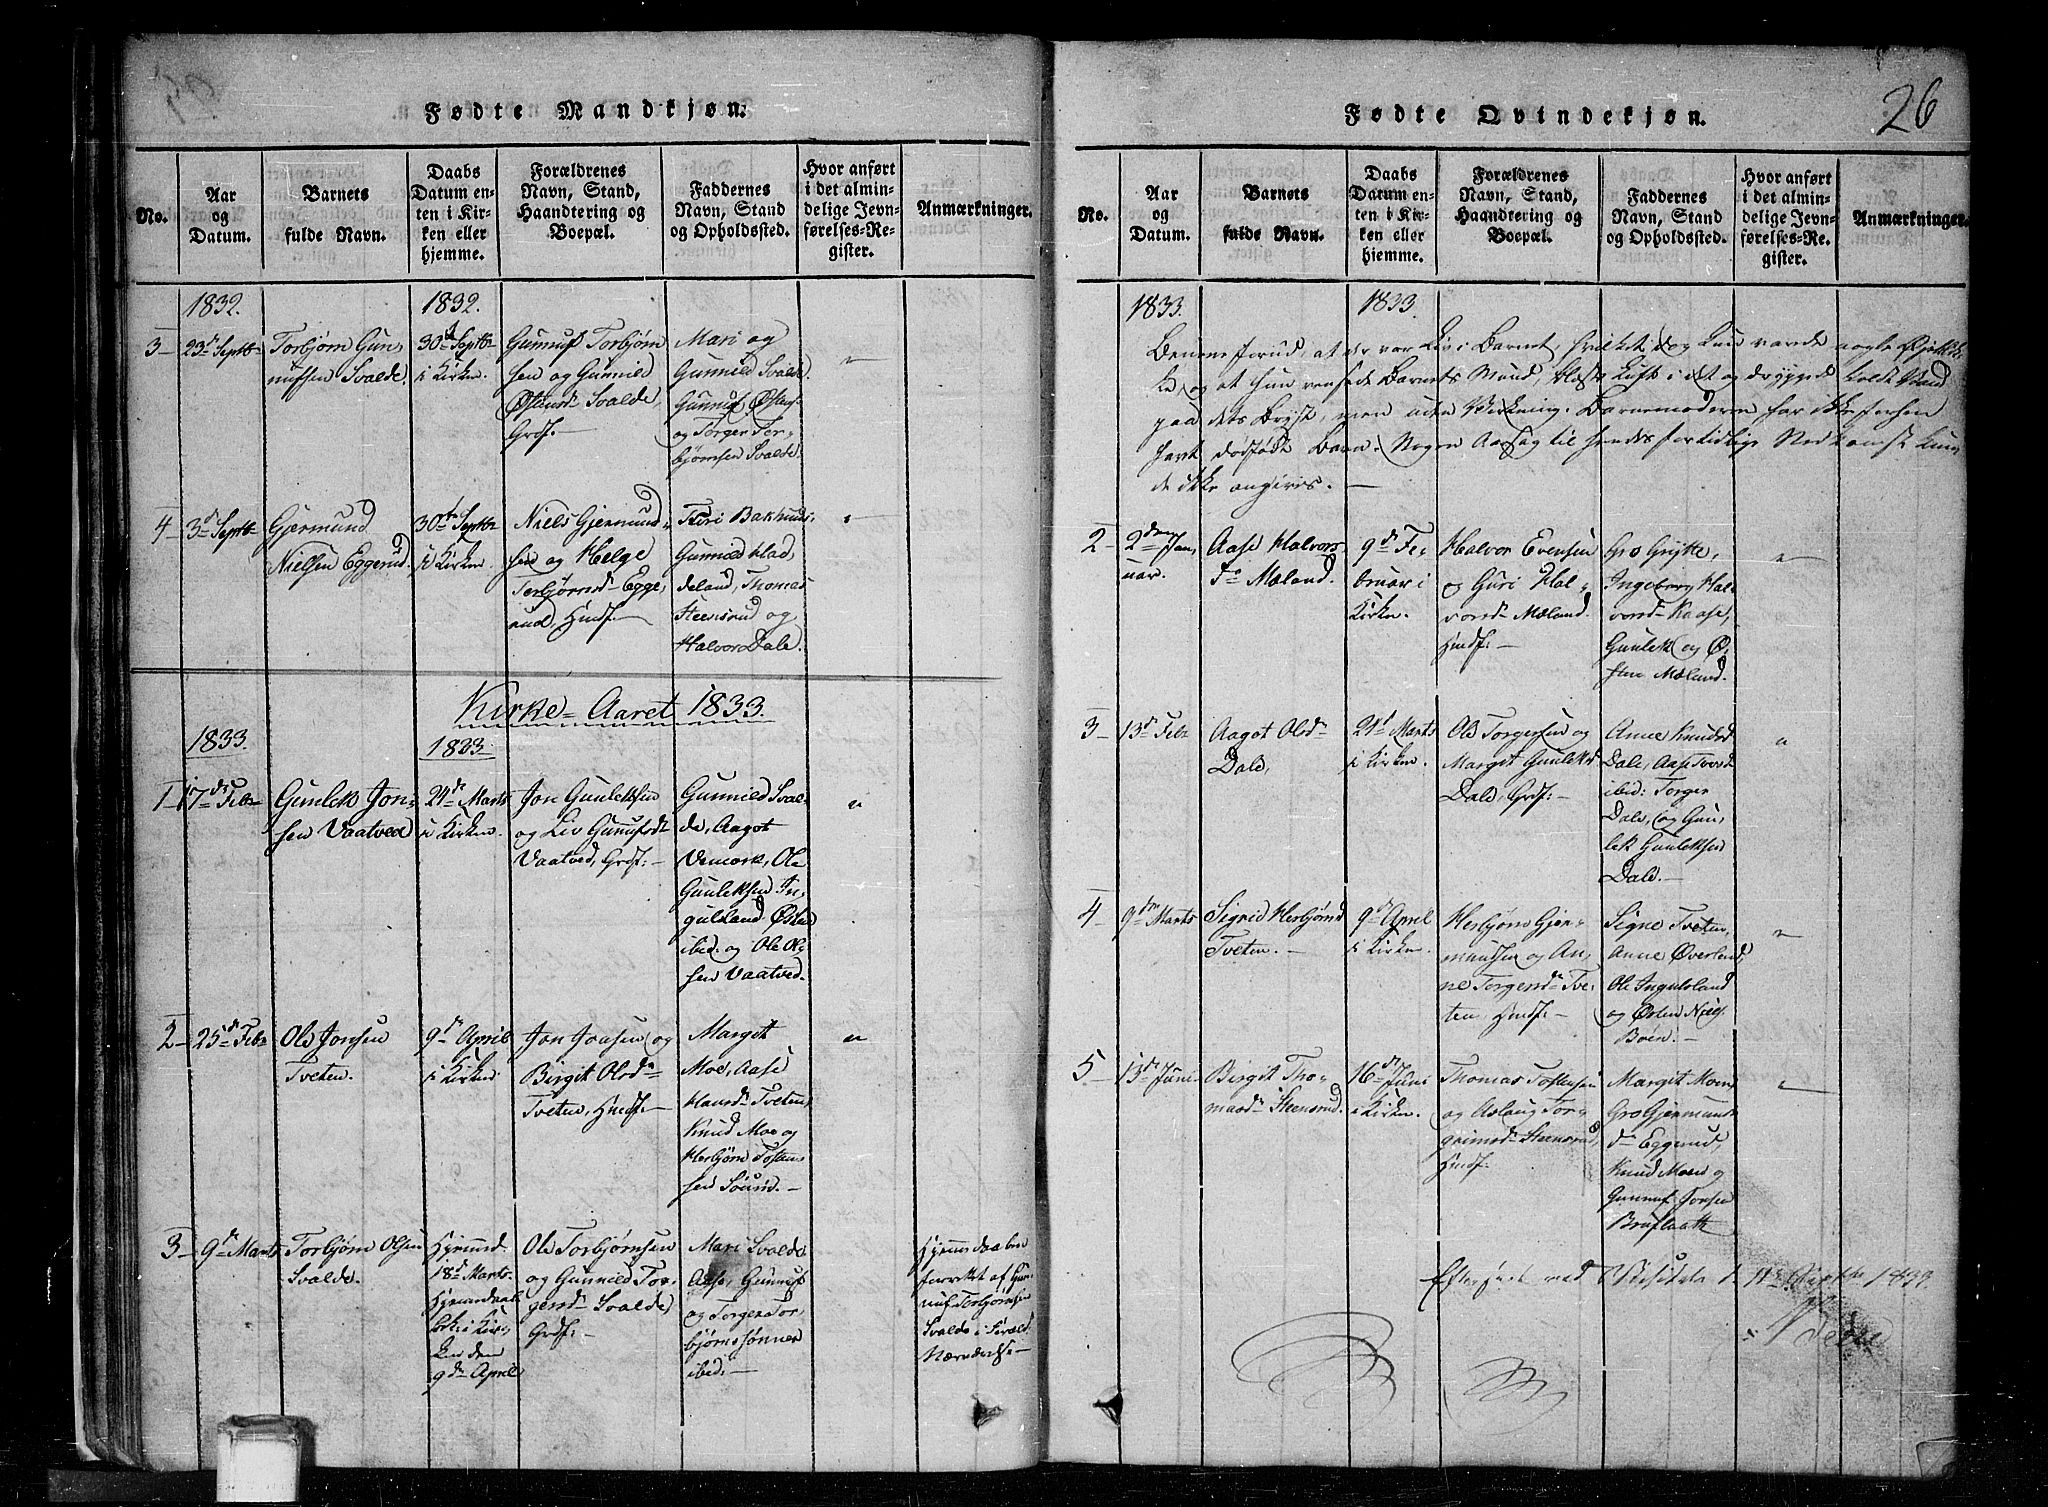 Fødte Mandkjøn.
No.
Aar
og
Datum.
Barnets
fulde Navn.
Daabs
Datum en-
ten i Kir-
ken eller
hjemme.
Forældrenes
Navn, Stand,
Haandtering og
Boepæl.
Faddernes
Navn, Stand
og Opholdssted.
Hvor anført
i det almin-
delige Jevn-
førelses-Re-
gister.
Anmærkninger.
1832.
1832.
3
23d Septbr
Torbjørn Gun-
nufsen Svalde.
30te Septbr
i Kirken.
Gunnuf Torbjørn-
sen og Gunnild
Østensd. Svalde,
Grdf.
Mari og
Gunnild Svalde.
Gunnuf Østens.
og Torger Tor-
bjørnsen Svalde.
4
3d Septbr
Gjermund
Nielsen Eggerud.
30te Septbr
i Kirken.
Niels Gjermund-
sen og Helge
Torbjørnsd. Egge-
rud, Husf.
Gunnild Had-
deland, Thomas
Steensrud og
Halvor Dale.
Kirke-Aaret 1833.
1833.
1833.
1
17de Febr
Gunlek Jon-
sen Vaatved
24de Marts
i Kirken.
Jon Gunleksen
og Liv Gunufsdr
Vaatved, Grdf:
Gunnild Sval-
de, Aagot
Vemork, Ole
Gunleksen In-
gulsland, Østen
ibid. og Ole Ol-
sen Vaatved.
2
25de Febr
Ole Jonsen
Tveten.
9de April
i Kirken
Jon Joasen og
Birgit Olsdr
Tveten, Husf.
Margit
Moe, Aase
Hansdr Tveten,
Knud Moe og
Herbjørn Tosten-
sen
3
9de Marts
Torbjørn Olsen
Svalde.
Hjemmed.
18de Marts.
Hjemmedaab
i Kir-
ken den
9de April
Ole Torbjørnsen
og Gunnild Tor-
gersdr Svalde,
Grdf:
Mari Svalde
Aase, Gunnuf
og Torger Tor-
bjørnssønner
ibid.
Hjemmedaaben
forrettet af Gun-
nuf Torbjørnsen
Svalde i Foræld.
Nærværelse.
26
Fødte Qvindekjøn.
No.
Aar
og
Datum.
Barnets
fulde Navn.
Daabs
Datum en-
ten i Kir-
ken eller
hjemme.
Forældrenes
Navn, Stand,
Haandtering og
Boepæl.
Faddernes
Navn, Stand
og Opholdssted.
Hvor anført
i det almin-
delige Jevn-
førelses-Re-
gister.
Anmærkninger.
1833.
1833.
forud, at der var Liv i Barnet, hvilket dog kun varede nogle Øjeblik-
ke, og at hun rensede Barnets Mund, blæste Luft i det og dryppede koldt Vand
paa dets Bryst, men uden Virkning. Barnemoderen har ikke forhen
havt dødfødt Barn. Nogen Aarsag til hendes fortidlige Nedkomst kun-
de ikke angives.
2
2den Jan-
uar.
Aase Halvors-
dr Mæland.
9de Fe-
bruar i
Kirken.
Halvor Evensen
og Guri Hal-
vorsdr Mæland.
Husf:
Gro Grytte,
Ingeborg Hal-
vorsdr Kaase,
Gunlek og Ø-
sten Mæland.
3
13de Febr
Aagot Olsdr
Dale,
24d Marts
i Kirken.
Ole Torgersen og
Margit Gunleksd.
Dale, Grdf:
Anne Knudsd.
Dale, Aase
ibid: Torger
Dale, og Gun-
lek Gunleksen
Dale.
4
9de Marts
Sigrid Herbjørnsd.
Tveten.
9de April
i Kirken.
Herbjørn Gjer-
mundsen og An-
ne Torgersdr Tve-
ten, Husf:
Signe Tveten,
Anne Øverland,
Ole Ingulsland
og Østen Niels.
Bøen.
5
13de Juni
Birgit Tho-
masdr Steensrud.
16de Juni
i Kirken.
Thomas Tostensen
og Aslaug Tor-
grimsdr Steensrud,
Husf:
Margit Moen
Gro Gjermunds
dr Eggerud,
Knud Moen og
Gunnuf Jonsen
Bruflaath
Efterseet ved Visitats